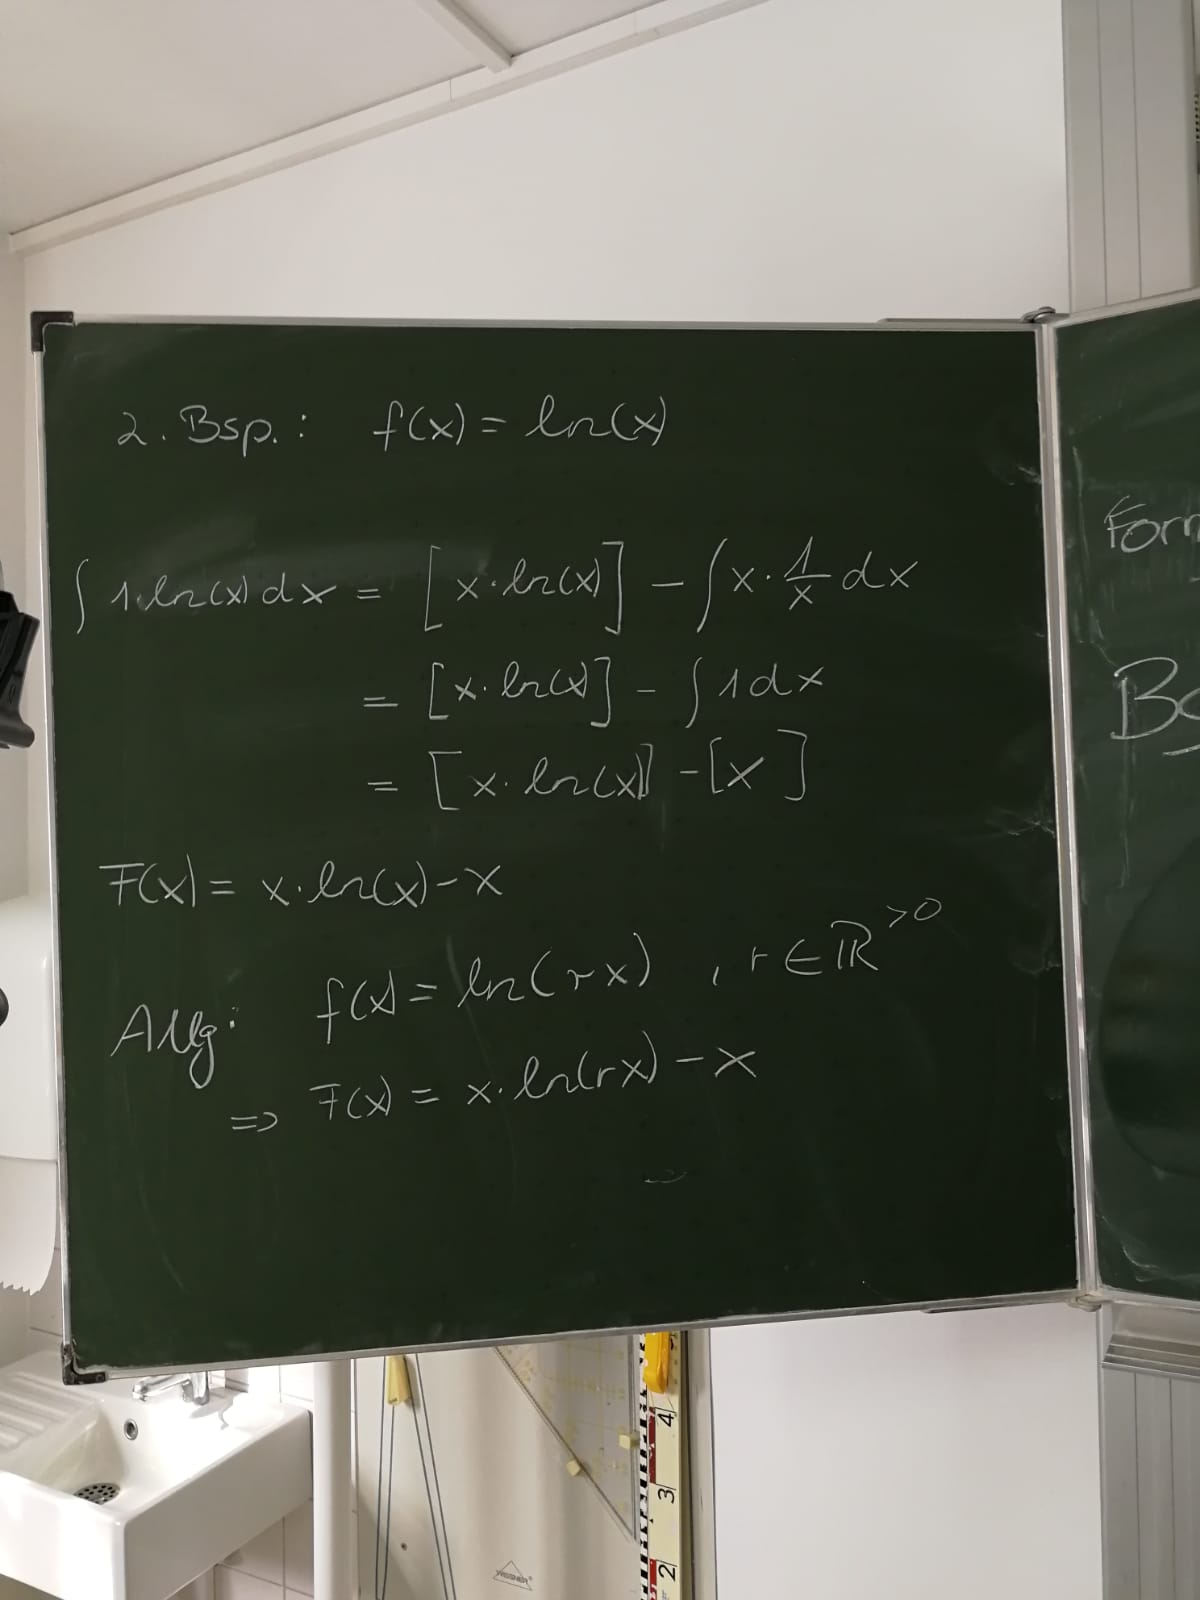 2. Bsp.: f(x) = ln(x)
∫ 1·ln(x) dx = [x·ln(x)] - ∫ x·1/x dx
= [x·ln(x)] - ∫ 1 dx
= [x·ln(x)] - [x]
F(x) = x·ln(x) - x
Allg: f(x) = ln(rx) , r ∈ ℝ^>0
⇒ F(x) = x·ln(rx) - x
Form
Bs
4
3
2